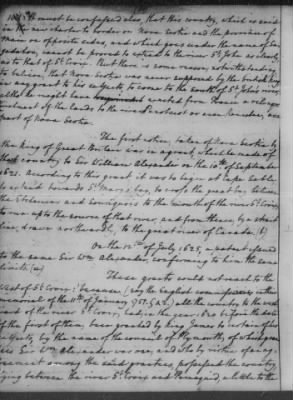 It must be confessed also, that this country, which is said
in the new charter to border on Nova Scotia and the province of
Main on opposite sides, and which goes under the name of Sag-
gadahoc, cannot be proved to extend to the river St. John as clearly
as to that of St. Croix. But there is some reason, notwithstanding,
to believe, that Nova Scotia was never supposed by the british King
in any grant to his subjects, to come to the south of St. John's river
altho' he might have exacted from France a relinqu-
ishment of the lands to the river Penobscot or even Kennebec, as a
part of Nova Scotia.
The first notice, taken of Nova Scotia by
the King of Great Britain was in a grant, which he made of
that country to Sir William Alexander on the 10th of September
1621. According to this grant it was to begin at Cape Sable
to extend towards St. Mary's bay, to cross the great bay between
the Etchemins and Souriquois to the mouth of the river St. Croix
to run up to the source of that river, and from thence, by a strait
line, drawn northwardly, to the great river of Canada.
On the 12th of July 1625, a patent passed
to the same Sir Wm. Alexander, confirming to him the same
limits.
These grants could not reach to the
west of St. Croix; because, (say the English commissaries, in their
memorial of the 11th of January 1751.) all the country to the west-
ward of the river St. Croix, had, in the year 1620 before the date
of the first of them, been granted by King James to certain of his
subjects, by the name of the council of Plymouth, of whom
Sir Wm. Alexander was one, and who by virtue of an ag-
reement among the said grantees, possessed the country
lying between the river St. Croix and Pemaquid,